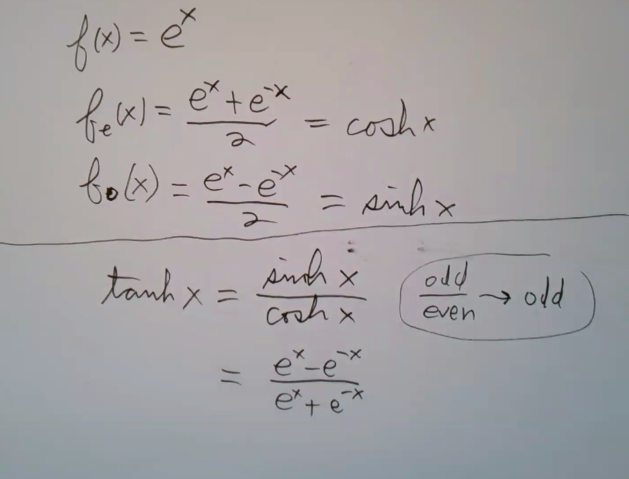 f(x) = e^x
f_e(x) = (e^x + e^-x)/2 = cosh x
f_o(x) = (e^x - e^-x)/2 = sinh x
tanh x = sinh x/cosh x odd/even → odd
= (e^x - e^-x)/(e^x + e^-x)